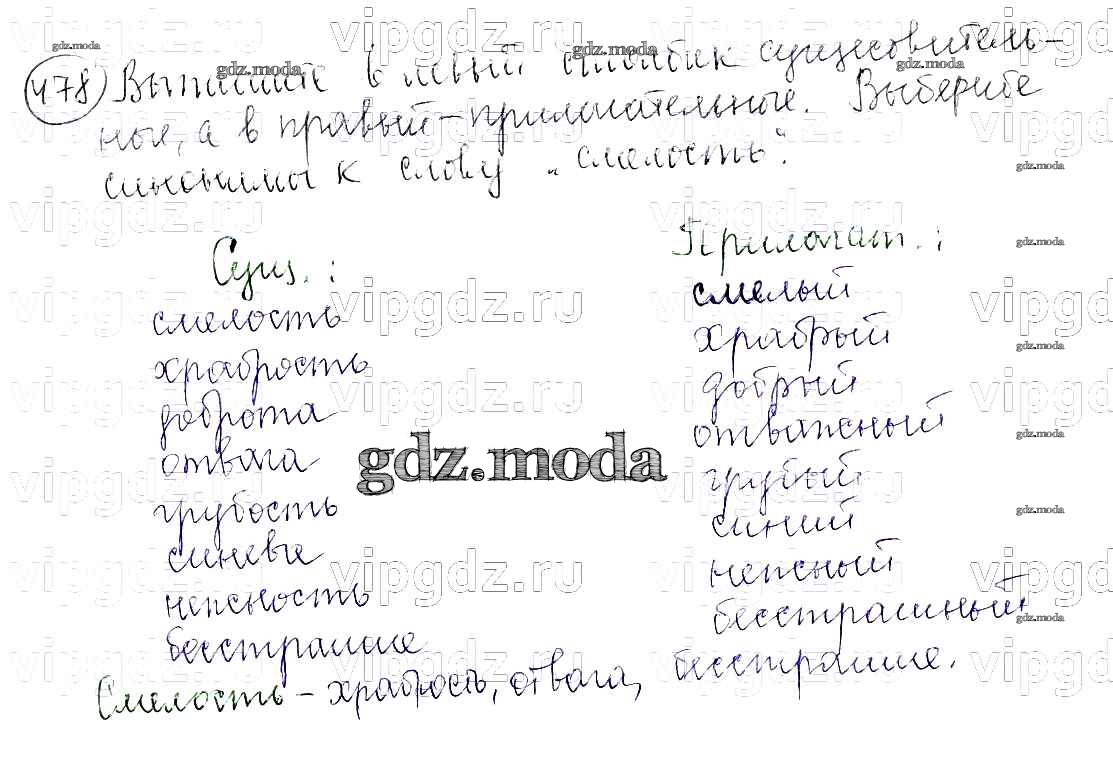 478 Выпишите в левый столбик существитель-
ные, а в правый - прилагательные. Выберите
синонимы к слову „смелость".
Сущ.: Прилагат.:
смелость смелый
храбрость храбрый
доброта добрый
отвага отважный
gdz.moda
грубость грубый
синева синий
нежность нежный
бесстрашие бесстрашный
Смелость - храбрость, отвага, бесстрашие.